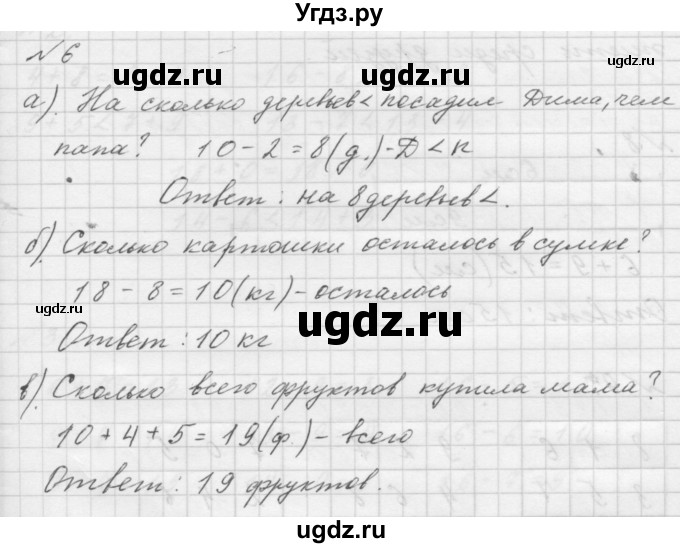 Угдз.ру
№6
а). На сколько деревьев < посадил Дима, чем
папа? 10-2=8(д.)-Д<п
Ответ: на 8 деревьев <.
б). Сколько картошки осталось в сумке?
18-8=10(кг)-осталось
Ответ: 10 кг
в). Сколько всего фруктов купила мама?
10+4+5=19(ф)-всего
Ответ: 19 фруктов.
ugdz.ru
ugdz.ru
ugdz.ru
ugdz.ru
ugdz.ru
ugdz.ru
ugdz.ru
ugdz.ru
ugdz.ru